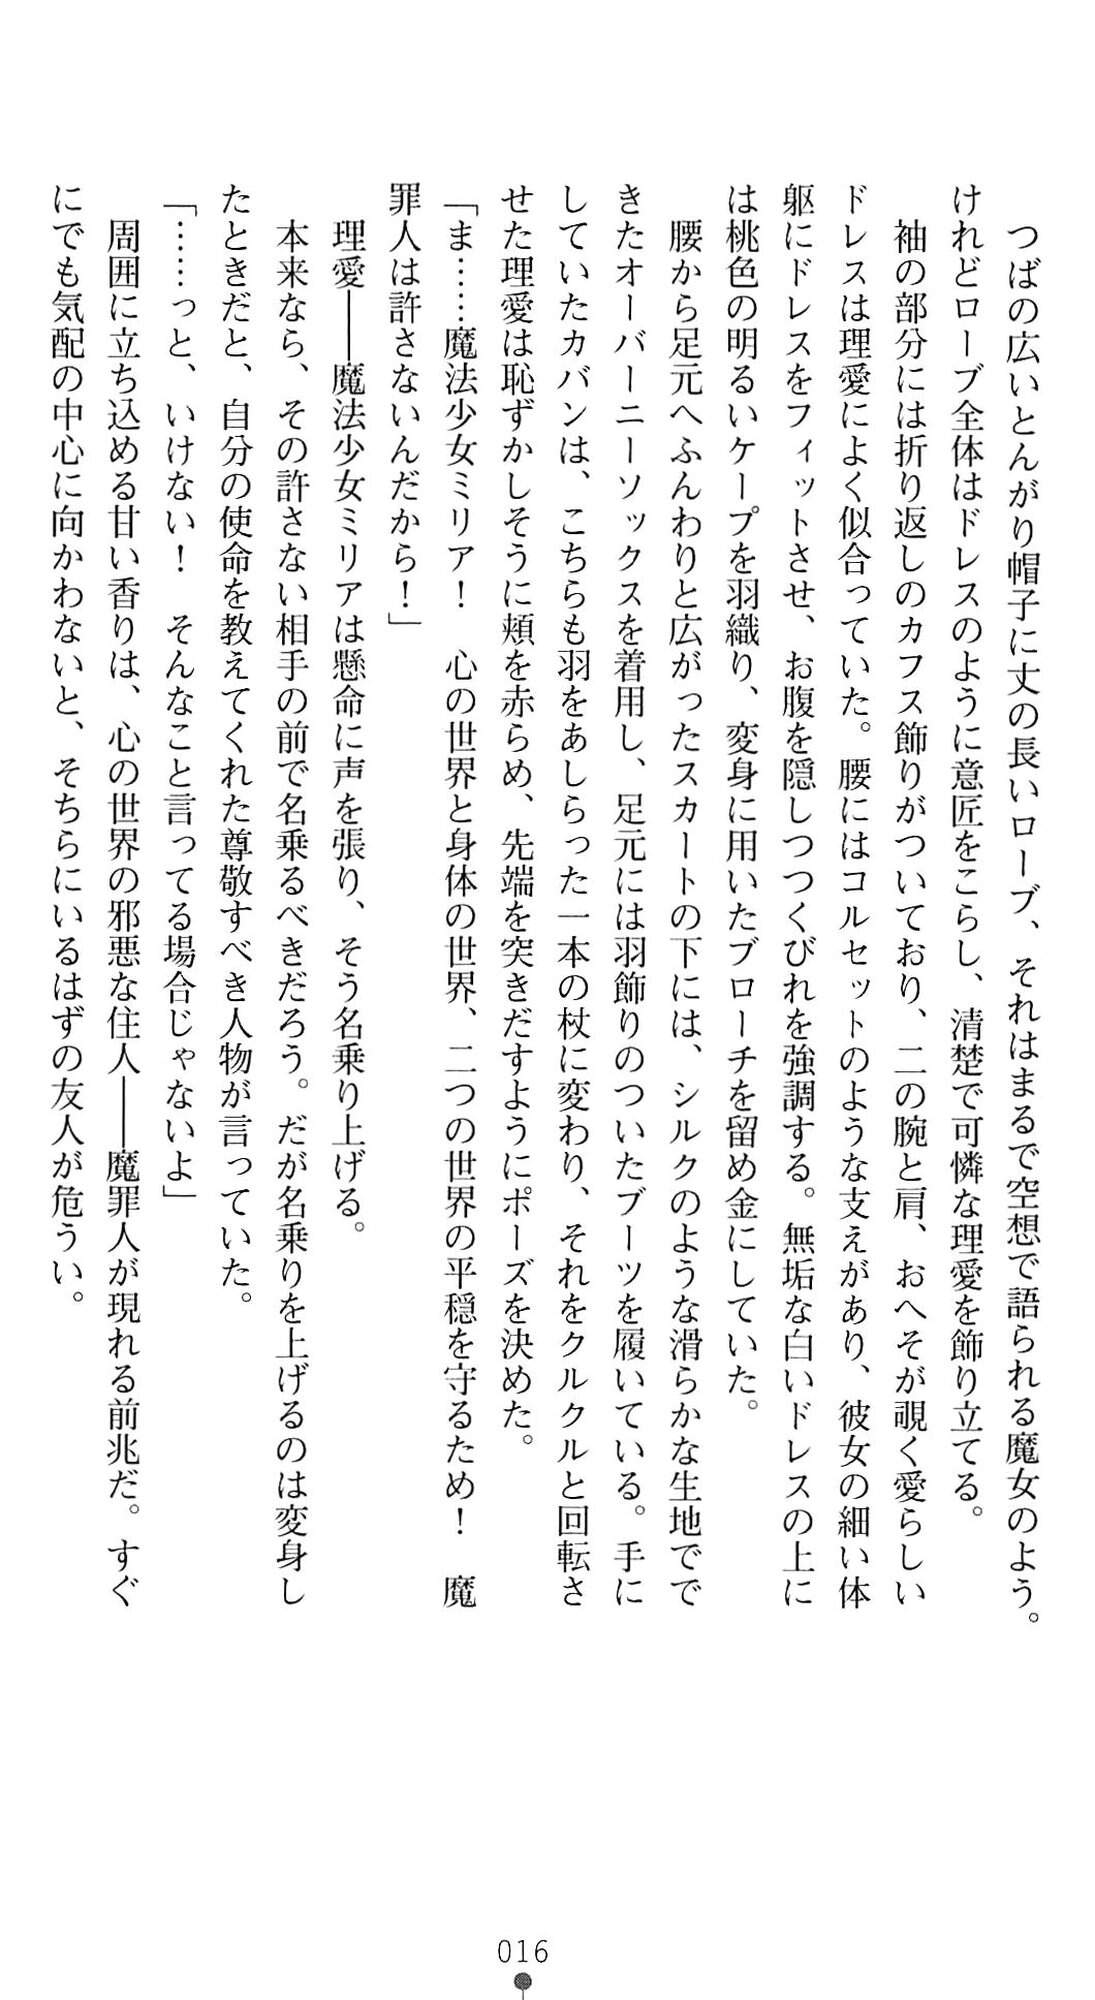 つばの広いとんがり帽子に丈の長いローブ、それはまるで空想で語られる魔女のよう。
けれどローブ全体はドレスのように意匠をこらし、清楚で可憐な理愛を飾り立てる。
袖の部分には折り返しのカフス飾りがついており、二の腕と肩、おへそが覗く愛らしい
ドレスは理愛によく似合っていた。腰にはコルセットのような支えがあり、彼女の細い体
躯にドレスをフィットさせ、お腹を隠しつつくびれを強調する。無垢な白いドレスの上に
は桃色の明るいケープを羽織り、変身に用いたブローチを留め金にしていた。
腰から足元へふんわりと広がったスカートの下には、シルクのような滑らかな生地でで
きたオーバーニーソックスを着用し、足元には羽飾りのついたブーツを履いている。手に
していたカバンは、こちらも羽をあしらった一本の杖に変わり、それをクルクルと回転さ
せた理愛は恥ずかしそうに頬を赤らめ、先端を突きだすようにポーズを決めた。
「ま……魔法少女ミリア！　心の世界と身体の世界、二つの世界の平穏を守るため！　魔
罪人は許さないんだから！」
理愛――魔法少女ミリアは懸命に声を張り、そう名乗り上げる。
本来なら、その許さない相手の前で名乗るべきだろう。だが名乗りを上げるのは変身し
たときだと、自分の使命を教えてくれた尊敬すべき人物が言っていた。
「……っと、いけない！　そんなこと言ってる場合じゃないよ」
周囲に立ち込める甘い香りは、心の世界の邪悪な住人――魔罪人が現れる前兆だ。すぐ
にでも気配の中心に向かわないと、そちらにいるはずの友人が危うい。
016